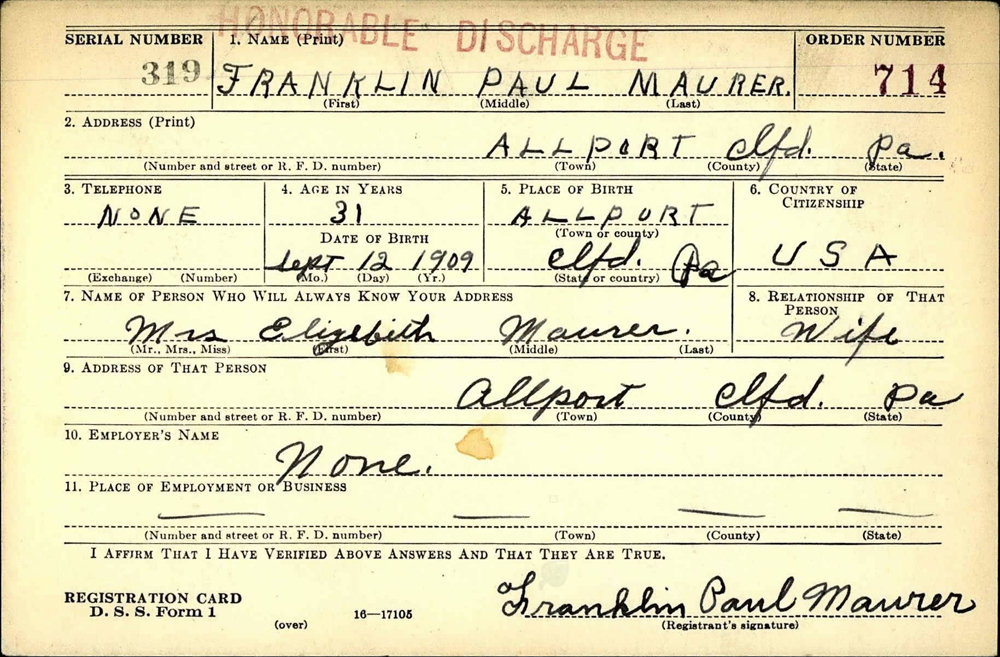 HONORABLE DISCHARGE
SERIAL NUMBER 1. NAME (Print) ORDER NUMBER
319 FRANKLIN PAUL MAURER. 714
(First) (Middle) (Last)
2. ADDRESS (Print)
ALLPORT Clfd. Pa.
(Number and street or R. F. D. number) (Town) (County) (State)
3. TELEPHONE 4. AGE IN YEARS 5. PLACE OF BIRTH 6. COUNTRY OF
CITIZENSHIP
NONE 31 ALLPORT
(Town or county)
DATE OF BIRTH
Sept 12 1909 Clfd. Pa USA
(Exchange) (Number) (Mo.) (Day) (Yr.) (State or country)
7. NAME OF PERSON WHO WILL ALWAYS KNOW YOUR ADDRESS 8. RELATIONSHIP OF THAT
PERSON
Mrs Elizebith Maurer. Wife
(Mr., Mrs., Miss) (First) (Middle) (Last)
9. ADDRESS OF THAT PERSON
Allport Clfd. Pa
(Number and street or R. F. D. number) (Town) (County) (State)
10. EMPLOYER'S NAME
None.
11. PLACE OF EMPLOYMENT OR BUSINESS
(Number and street or R. F. D. number) (Town) (County) (State)
I AFFIRM THAT I HAVE VERIFIED ABOVE ANSWERS AND THAT THEY ARE TRUE.
REGISTRATION CARD
D. S. S. Form 1 16—17105 Franklin Paul Maurer
(over) (Registrant's signature)